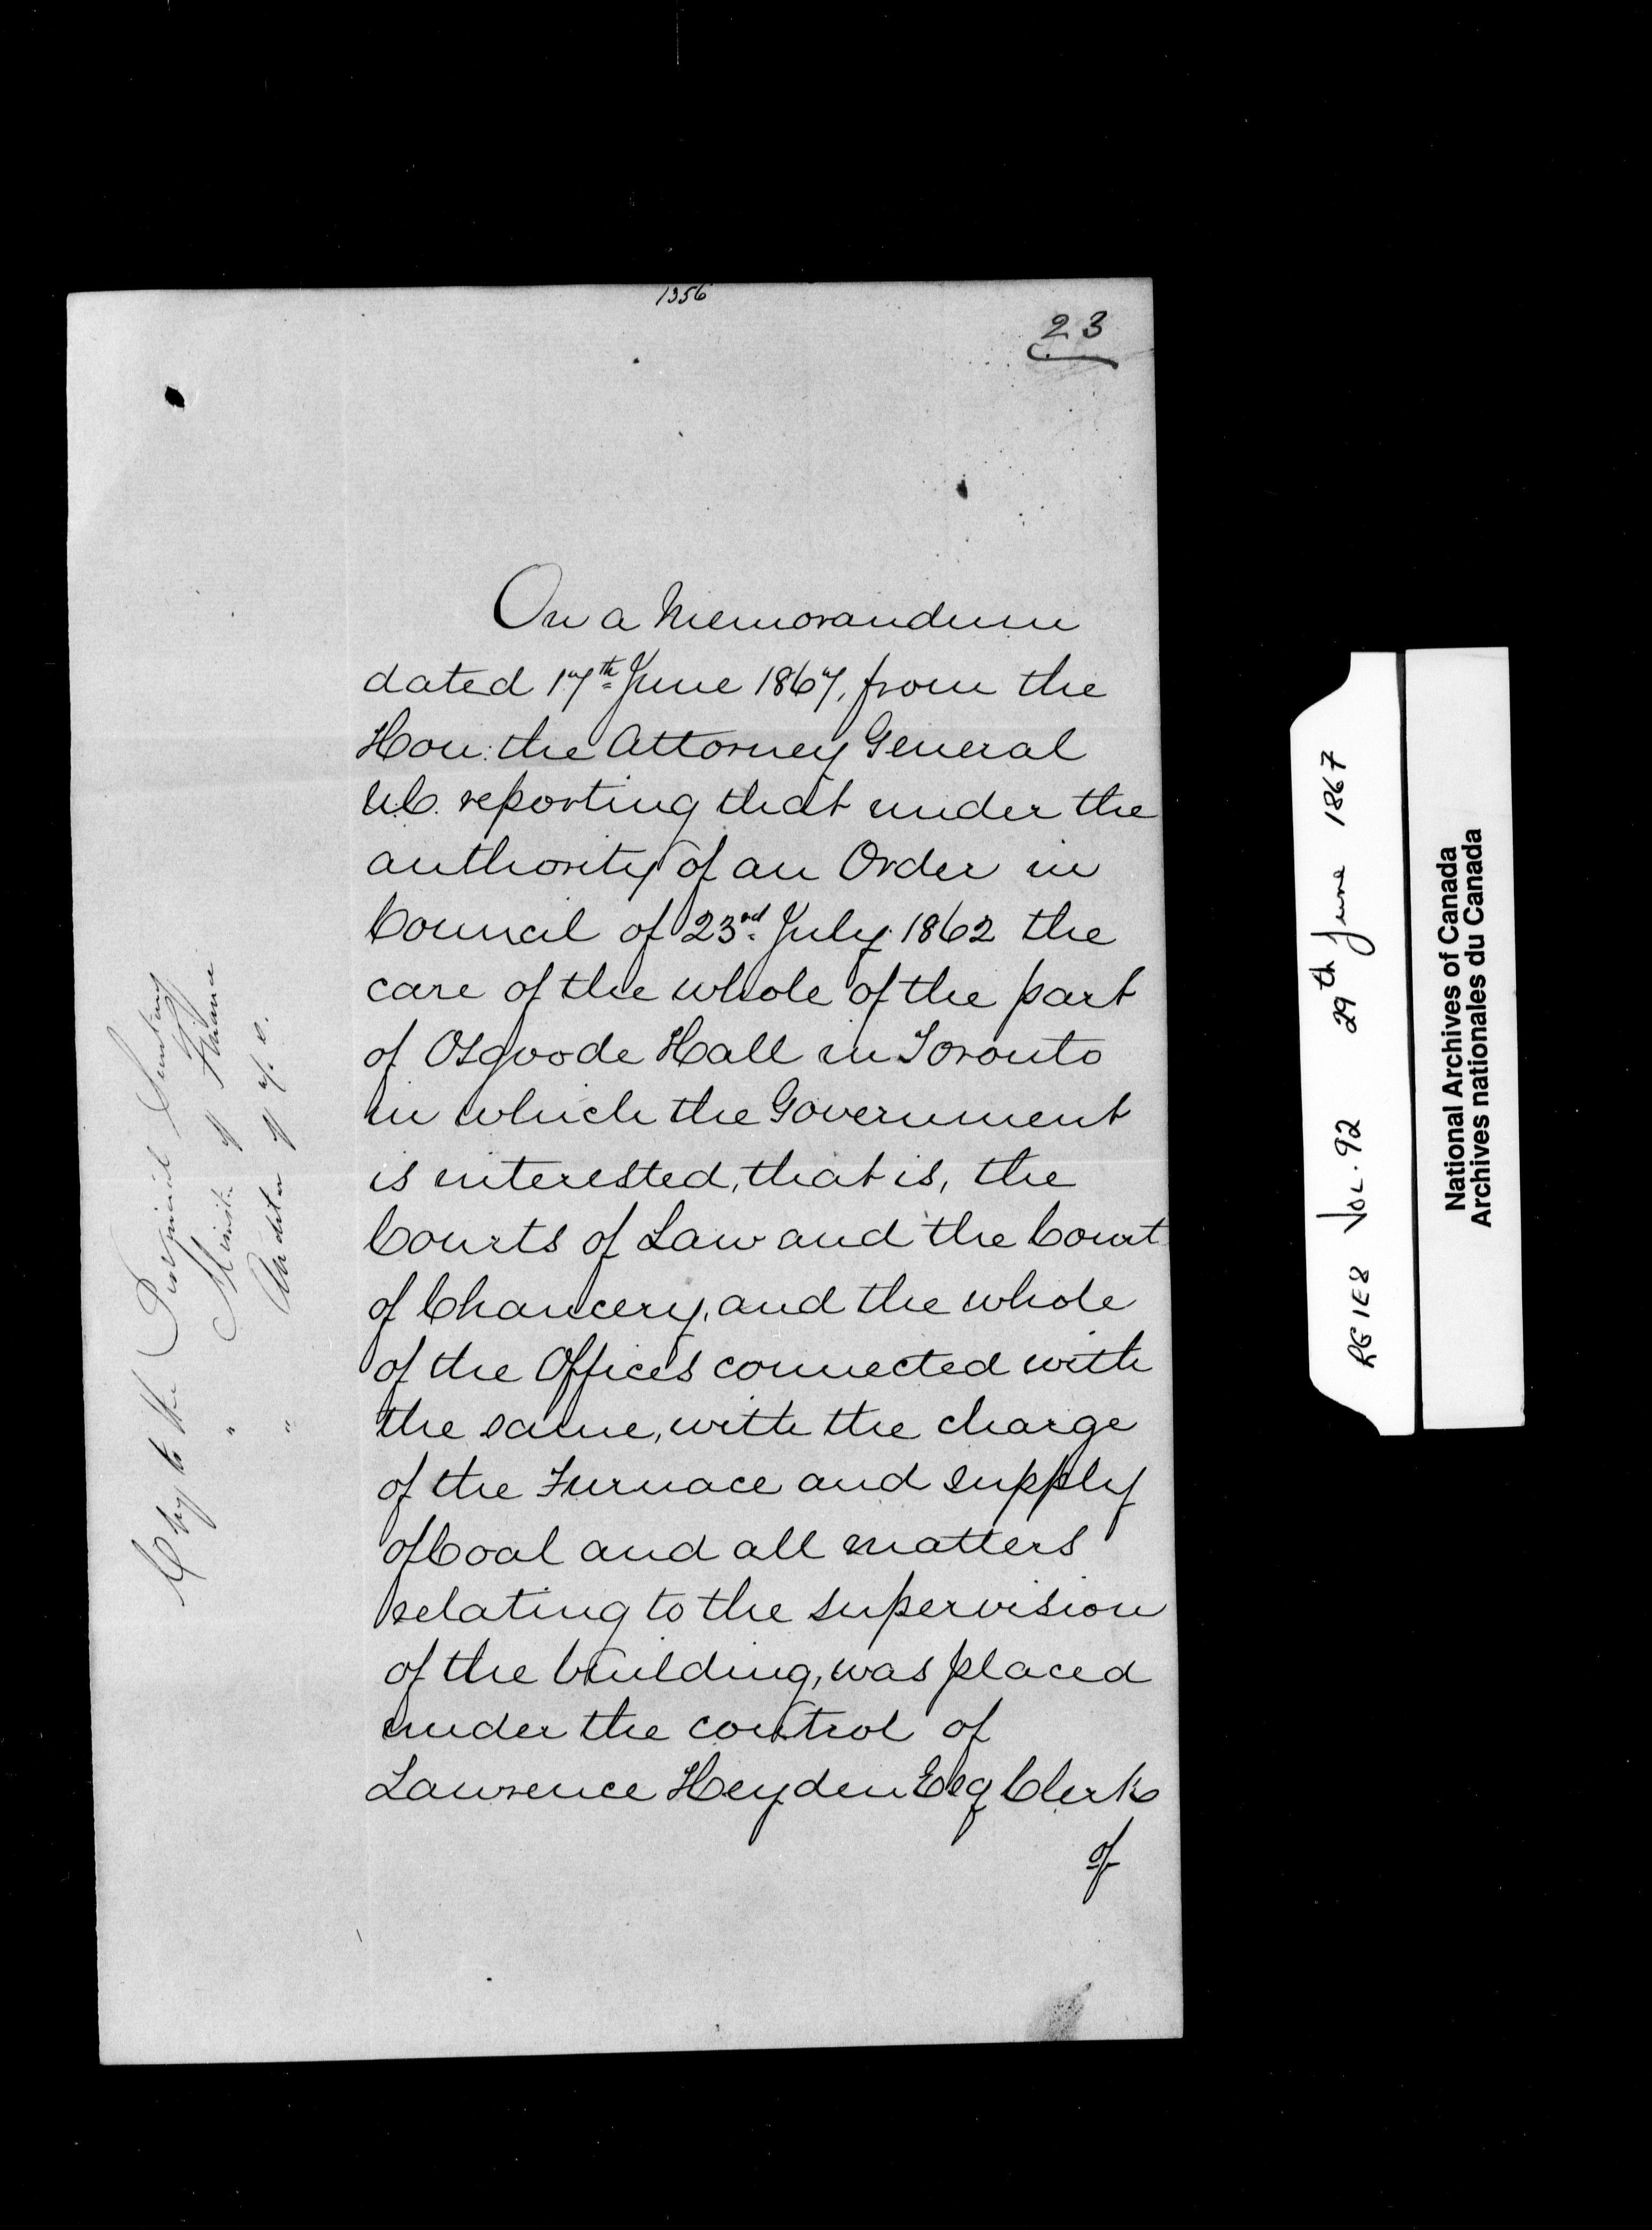 1356
23
On a Memorandum
dated 17th June 1867, from the
Hon: the Attorney General
U.C. reporting that under the
authority of an Order in
Council of 23rd July 1862 the
care of the whole of the part
of Osgoode Hall in Toronto
in which the Government
is interested, that is, the
Courts of Law and the Court
of Chancery, and the whole
of the Offices connected with
the same, with the charge
of the Furnace and supply
of Coal and all matters
relating to the supervision
of the building, was placed
under the control of
Lawrence Heyden Esq Clerk
of
Copy to the Provincial Secretary
" Minister of Finance
" Auditor
RG1E8 VOL. 92 29th June 1867
National Archives of Canada
Archives nationales du Canada